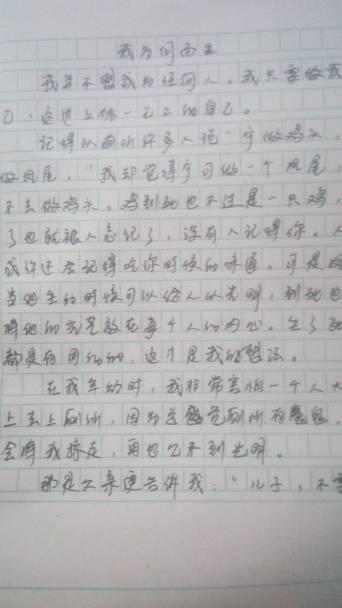 我为何而生
我并不想成为任何人，我只要做我
己，这世上独一无二的自己。
记得以前听许多人说“宁做鸡头，
做凤尾，”我却觉得宁可做一个凤尾，
不去做鸡头。鸡到死也不过是一只鸡，
了也就被人忘记了，没有人记得你。
或许还会记得吃你时候的味道。可是
当他生的时候可以给人以光明，到死也
将他的光芒放在每个人的内心。生了死
都是有用的，这才是我的想法。
在我年幼时，我非常害怕一个人
上去上厕所，因为总觉厕所有魔鬼，
会将我掠走，再也见不到光明。
那是父亲便告诉我：“儿子，不